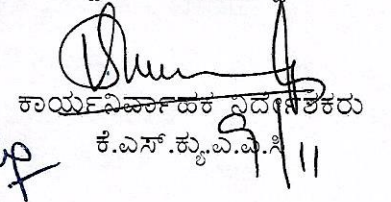 ಕಾರ್ಯನಿರ್ವಾಹಕ ನಿರ್ದೇಶಕರು
ಕೆ.ಎಸ್.ಕ್ಯು.ಎ.ಎ.ಸಿ
9/11